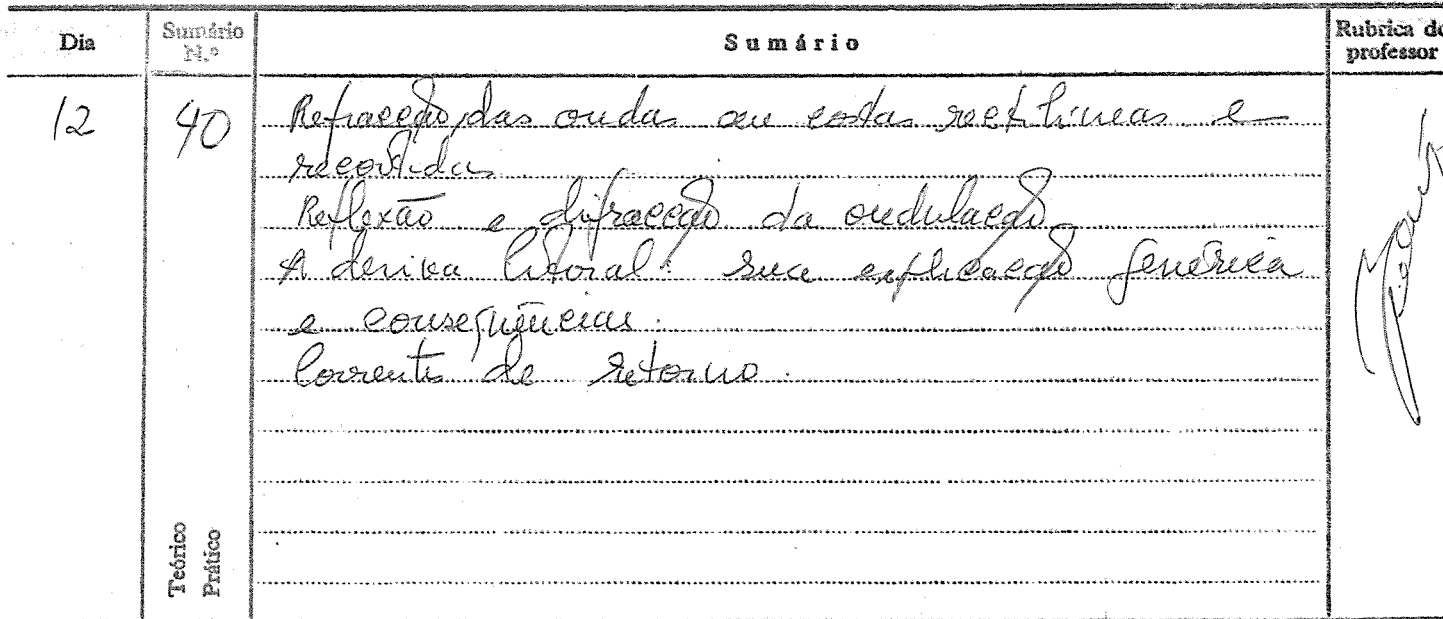 Dia
Sumário N.º
Sumário
Rubrica do professor
12
40
Refracção das ondas em costas rectilíneas e
recortidas
Reflexão e difracção da ondulação
A deriva litoral: sua explicação genérica
e consequências.
Correntes de retorno.
Teórico
Prático